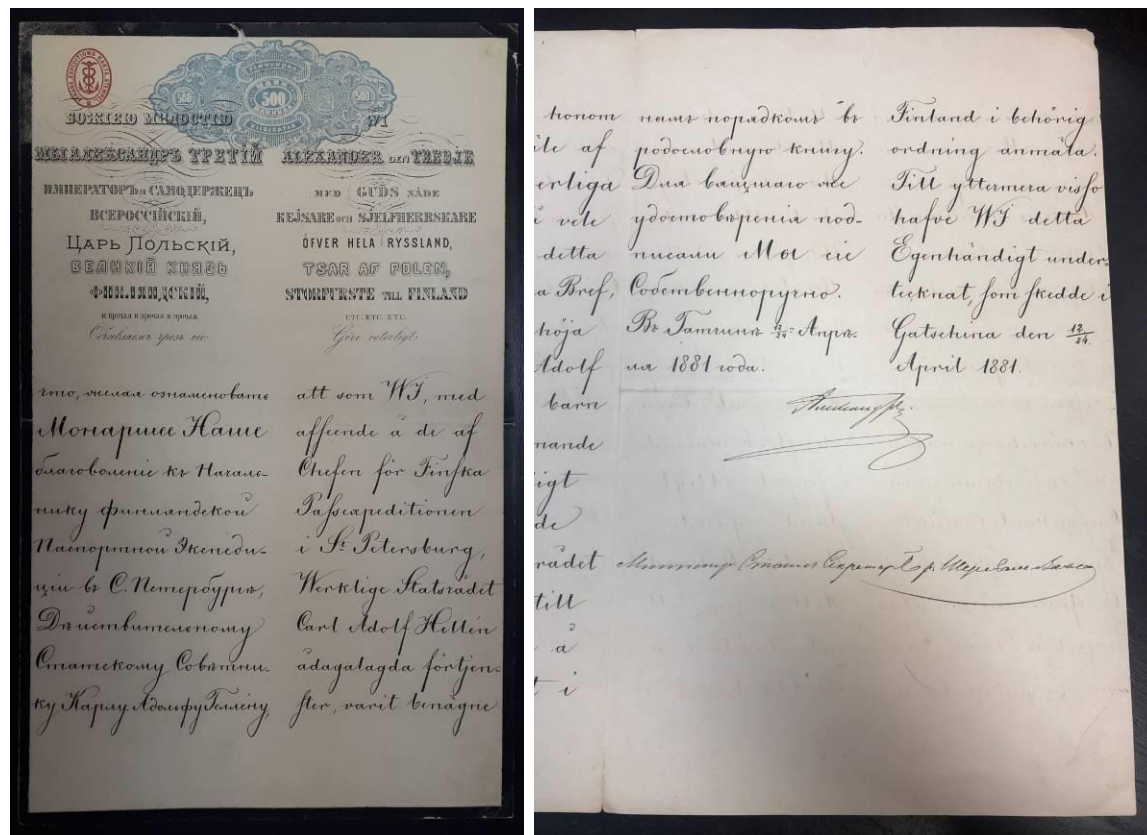 500
БОЖІЕЮ МИЛОСТІЮ
МЫ АЛЕКСАНДРЪ ТРЕТІЙ
ИМПЕРАТОРЪ и САМОДЕРЖЕЦЪ
ВСЕРОССІЙСКІЙ,
ЦАРЬ ПОЛЬСКІЙ,
ВЕЛИКІЙ КНЯЗЬ
ФИНЛЯНДСКІЙ,
и прочая и прочая и прочая.
Объявляемъ чрезъ сіе:
что, желая ознаменовать
Монаршее Наше
благоволеніе къ Началь-
нику финляндской
Паспортной Экспеди-
ціи въ С. Петербургѣ,
Дѣйствительному
Статскому Совѣтни-
ку Карлу Адольфу Геллену,
WI
ALEXANDER DEN TREDJE
MED GUDS NÅDE
KEJSARE OCH SJELFHERRSKARE
ÖFVER HELA RYSSLAND,
TSAR AF POLEN,
STORFURSTE TILL FINLAND
ETC. ETC. ETC.
Göre veterligt:
att som WI, med
afseende å de af
Chefen för Finska
Passexpeditionen
i St Petersburg,
Werklige Statsrådet
Carl Adolf Hellén
ådagalagda förtjen-
ster, varit benägne
honom
af
vete
detta
Bref,
höja
Adolf
barn
rådet
till
å
i
намъ порядкомъ въ
родословную книгу.
Для вящшаго же
удостовѣренія под-
писали Мы сіе
Собственноручно.
Въ Гатчинѣ 12/24 Апрѣ-
ля 1881 года.
Finland i behörig
ordning anmäla.
Till yttermera visso
hafve WI detta
Egenhändigt under-
tecknat, som skedde i
Gatschina den 12/24.
April 1881.
Александръ
Министръ Статсъ Секретарь